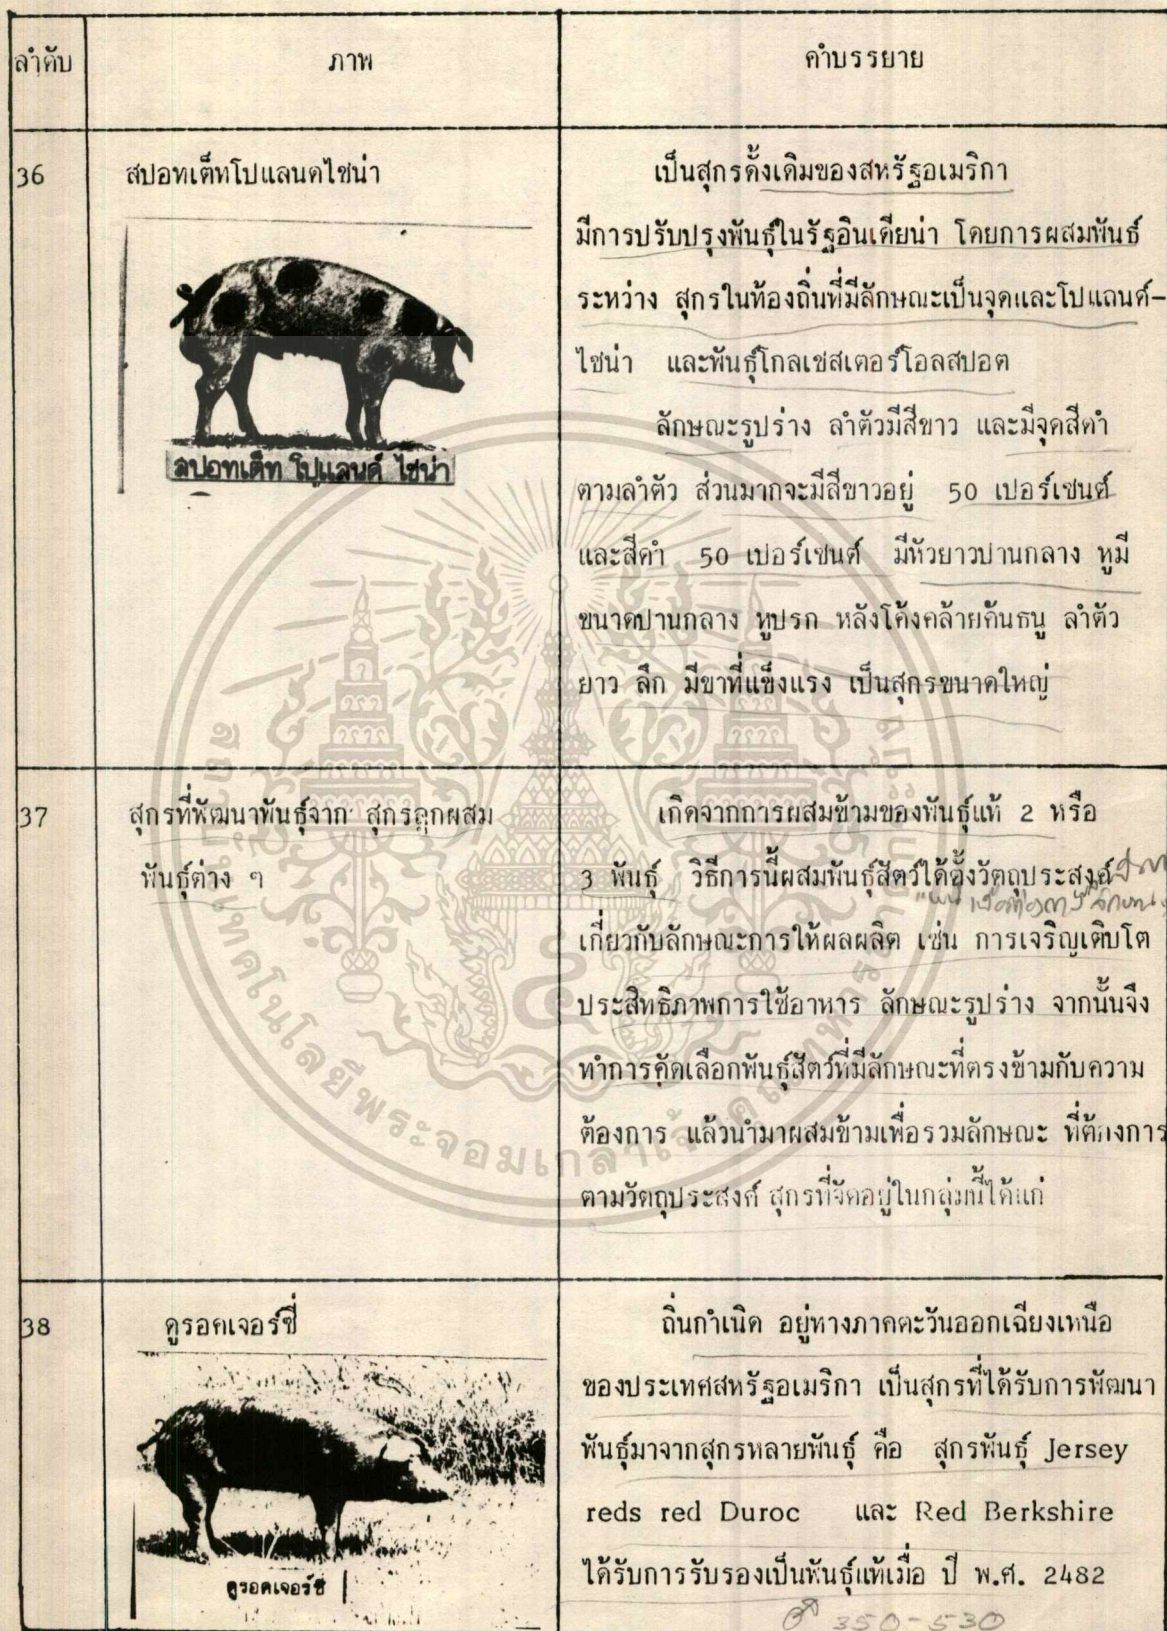 ลำดับ ภาพ คำบรรยาย
36 สปอทเต็ทโปแลนดไชน่า
สปอทเต็ท โปแลนด์ ไชน่า
เป็นสุกรดั้งเดิมของสหรัฐอเมริกา
มีการปรับปรุงพันธุ์ในรัฐอินเดียน่า โดยการผสมพันธ์
ระหว่าง สุกรในท้องถิ่นที่มีลักษณะเป็นจุดและโปแลนด์-
ไชน่า และพันธุ์โกลเชสเตอร์โอลสปอต
ลักษณะรูปร่าง ลำตัวมีสีขาว และมีจุดสีดำ
ตามลำตัว ส่วนมากจะมีสีขาวอยู่ 50 เปอร์เซนต์
และสีดำ 50 เปอร์เซนต์ มีหัวยาวปานกลาง หูมี
ขนาดปานกลาง หูปรก หลังโค้งคล้ายคันธนู ลำตัว
ยาว ลึก มีขาที่แข็งแรง เป็นสุกรขนาดใหญ่
37 สุกรที่พัฒนาพันธุ์จาก สุกรลูกผสม
พันธุ์ต่าง ๆ
เกิดจากการผสมข้ามของพันธุ์แท้ 2 หรือ
3 พันธุ์ วิธีการนี้ผสมพันธุ์สัตว์ได้ตั้งวัตถุประสงค์
เกี่ยวกับลักษณะการให้ผลผลิต เช่น การเจริญเติบโต
ประสิทธิภาพการใช้อาหาร ลักษณะรูปร่าง จากนั้นจึง
ทำการคัดเลือกพันธุ์สัตว์ที่มีลักษณะที่ตรงข้ามกับความ
ต้องการ แล้วนำมาผสมข้ามเพื่อรวมลักษณะ ที่ต้องการ
ตามวัตถุประสงค์ สุกรที่จัดอยู่ในกลุ่มนี้ได้แก่
38 ดูรอคเจอร์ซี่
ดูรอคเจอร์ซี่
ถิ่นกำเนิด อยู่ทางภาคตะวันออกเฉียงเหนือ
ของประเทศสหรัฐอเมริกา เป็นสุกรที่ได้รับการพัฒนา
พันธุ์มาจากสุกรหลายพันธุ์ คือ สุกรพันธุ์ Jersey
reds red Duroc และ Red Berkshire
ได้รับการรับรองเป็นพันธุ์แท้เมื่อ ปี พ.ศ. 2482
♂ 350-530
สถาบันเทคโนโลยีพระจอมเกล้าเจ้าคุณทหารลาดกระบัง